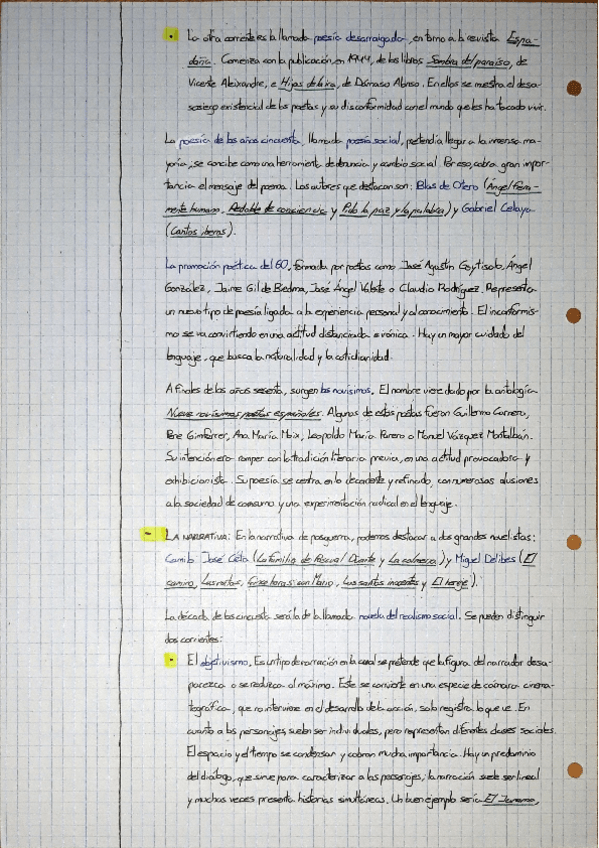 · La otra corriente es la llamada poesía desarraigada, en torno a la revista Espa-
daña. Comienza con la publicación, en 1944, de los libros Sombra del paraíso, de
Vicente Aleixandre, e Hijos de la ira, de Dámaso Alonso. En ellos se muestra el desa-
sosiego existencial de los poetas y su disconformidad con el mundo que les ha tocado vivir.
La poesía de los años cincuenta, llamada poesía social, pretendía llegar a la inmensa ma-
yoría, se concibe como una herramienta de denuncia y cambio social. Por eso, cobra gran impor-
tancia el mensaje del poema. Los autores que destacan son: Blas de Otero (Ángel fiera-
mente humano, Redoble de conciencia y Pido la paz y la palabra) y Gabriel Celaya
(Cantos iberos).
La promoción poética del 60, formada por poetas como José Agustín Goytisolo, Ángel
González, Jaime Gil de Biedma, José Ángel Valente o Claudio Rodríguez. Representa
un nuevo tipo de poesía ligada a la experiencia personal y al conocimiento. El inconformis-
mo se va convirtiendo en una actitud distanciada e irónica. Hay un mayor cuidado del
lenguaje, que busca la naturalidad y la cotidianidad.
A finales de los años sesenta, surgen los novísimos. El nombre viene dado por la antología
Nueve novísimos poetas españoles. Algunos de estos poetas fueron Guillermo Carnero,
Pere Gimferrer, Ana María Moix, Leopoldo María Panero o Manuel Vázquez Montalbán.
Su intención era romper con la tradición literaria previa, en una actitud provocadora y
exhibicionista. Su poesía se centra en lo decadente y refinado, con numerosas alusiones
a la sociedad de consumo y una experimentación radical en el lenguaje.
- LA NARRATIVA: En la narrativa de posguerra, podemos destacar a dos grandes novelistas:
Camilo José Cela (La familia de Pascual Duarte y La colmena) y Miguel Delibes (El
camino, Las ratas, Cinco horas con Mario, Los santos inocentes y El hereje).
La década de los cincuenta será la de la llamada novela del realismo social. Se pueden distinguir
dos corrientes:
· El objetivismo. Es un tipo de narración en la cual se pretende que la figura del narrador desa-
parezca o se reduzca al máximo. Este se convierte en una especie de cámara cinema-
tográfica, que no interviene en el desarrollo de la acción, solo registra lo que ve. En
cuanto a los personajes, suelen ser individuales, pero representan diferentes clases sociales.
El espacio y el tiempo se condensan y cobran mucha importancia. Hay un predominio
del diálogo, que sirve para caracterizar a los personajes; la narración suele ser lineal
y muchas veces presenta historias simultáneas. Un buen ejemplo sería El Jarama,